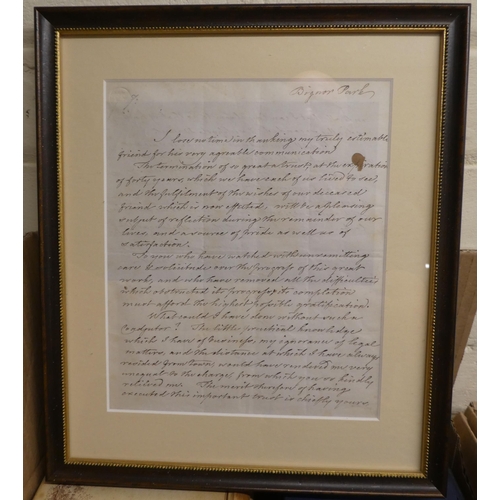 Bignor Park
I lose no time in thanking my truly estimable
friend for her very agreeable communication
The termination of so great a work, at the expiration
of forty years, which we have each of us lived to see,
and the fulfilment of the wishes of our deceased
friend which is now effected, will be a pleasing
subject of reflection during the remainder of our
lives, and a source of pride as well as of
satisfaction.
To you who have watched with unremitting
care & solicitude over the progress of this great
work, and who have removed all the difficulties
which obstructed its progress to its completion,
must afford the highest possible gratification.
What could I have done without such a
Coadjutor? The little practical knowledge
which I have of business, my ignorance of legal
matters, and the distance at which I have always
resided from town, would have rendered me very
unequal to the charge, from which you so kindly
relieved me. The merit therefore of having
executed this important trust is chiefly yours